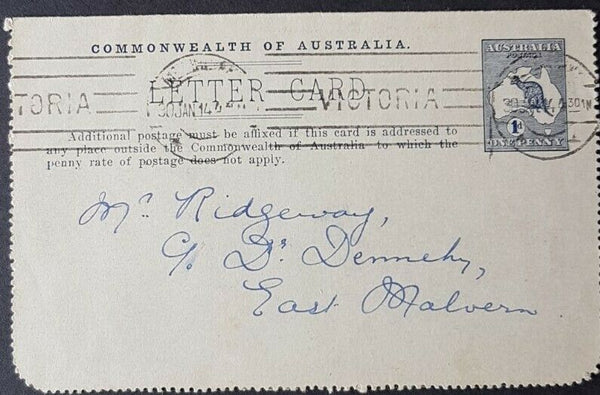 COMMONWEALTH OF AUSTRALIA.
LETTER CARD
AUSTRALIA
POSTAGE
1d
ONE PENNY
TORIA
30 JAN 14
VICTORIA
Additional postage must be affixed if this card is addressed to
any place outside the Commonwealth of Australia to which the
penny rate of postage does not apply.
Mr. Ridgeway,
c/o Dr. Dennehy,
East Malvern